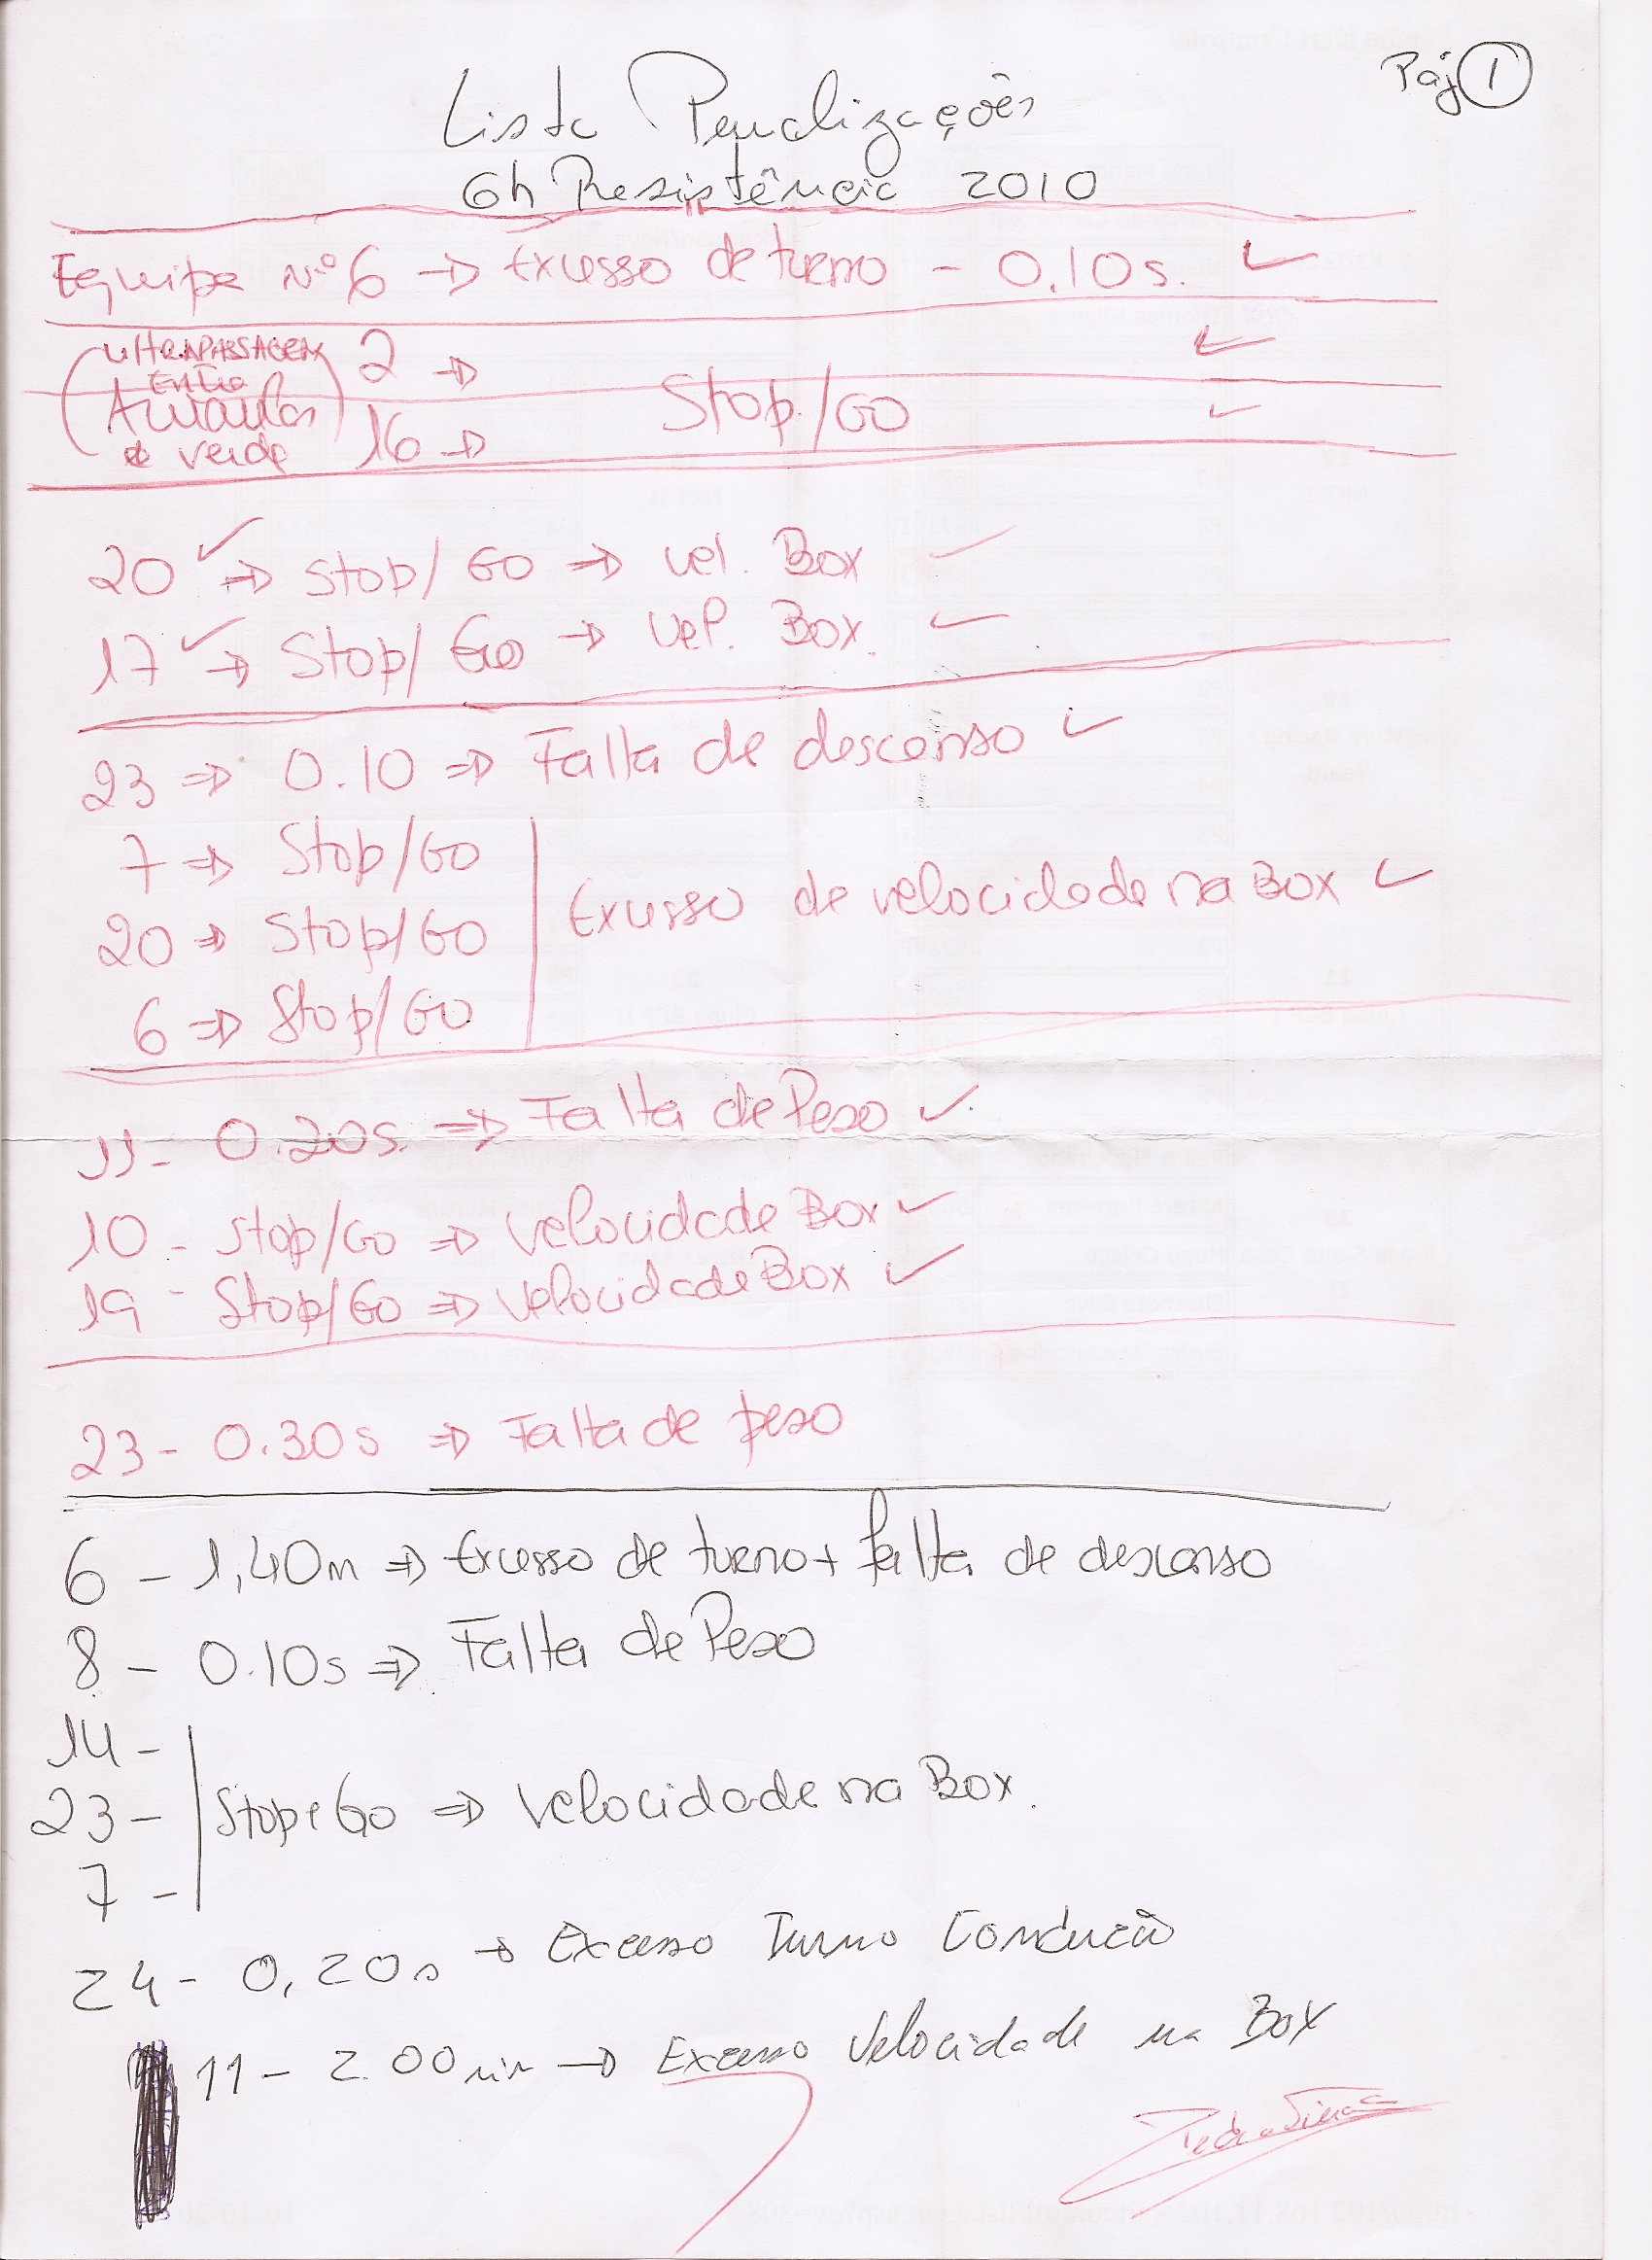 Páj 1
Lista Penalizações
6h Resistência 2010
Equipe Nº 6 → Excesso de turno - 0.10s. ✓
(ultrapassagem 2 → ✓
entre
Amarelas 16 → Stop/GO ✓
e verde)
20 ✓ → Stop/GO → vel. Box ✓
17 ✓ → Stop/Go → Vel. Box. ✓
23 ⇒ 0.10 ⇒ Falta de descanso ✓
7 ⇒ Stop/GO
20 ⇒ Stop/GO Excesso de velocidade na Box ✓
6 ⇒ Stop/GO
11 - 0.20s. ⇒ Falta de Peso ✓
10 - Stop/Go ⇒ Velocidade Box ✓
19 - Stop/Go ⇒ Velocidade Box ✓
23 - 0.30s ⇒ Falta de peso
6 - 1,40m ⇒ Excesso de turno + falta de descanso
8 - 0.10s ⇒ Falta de Peso
14 -
23 - Stop e Go ⇒ Velocidade na Box.
7 -
24 - 0,20s → Excesso Turno Condução
11 - 2.00min → Excesso Velocidade na Box